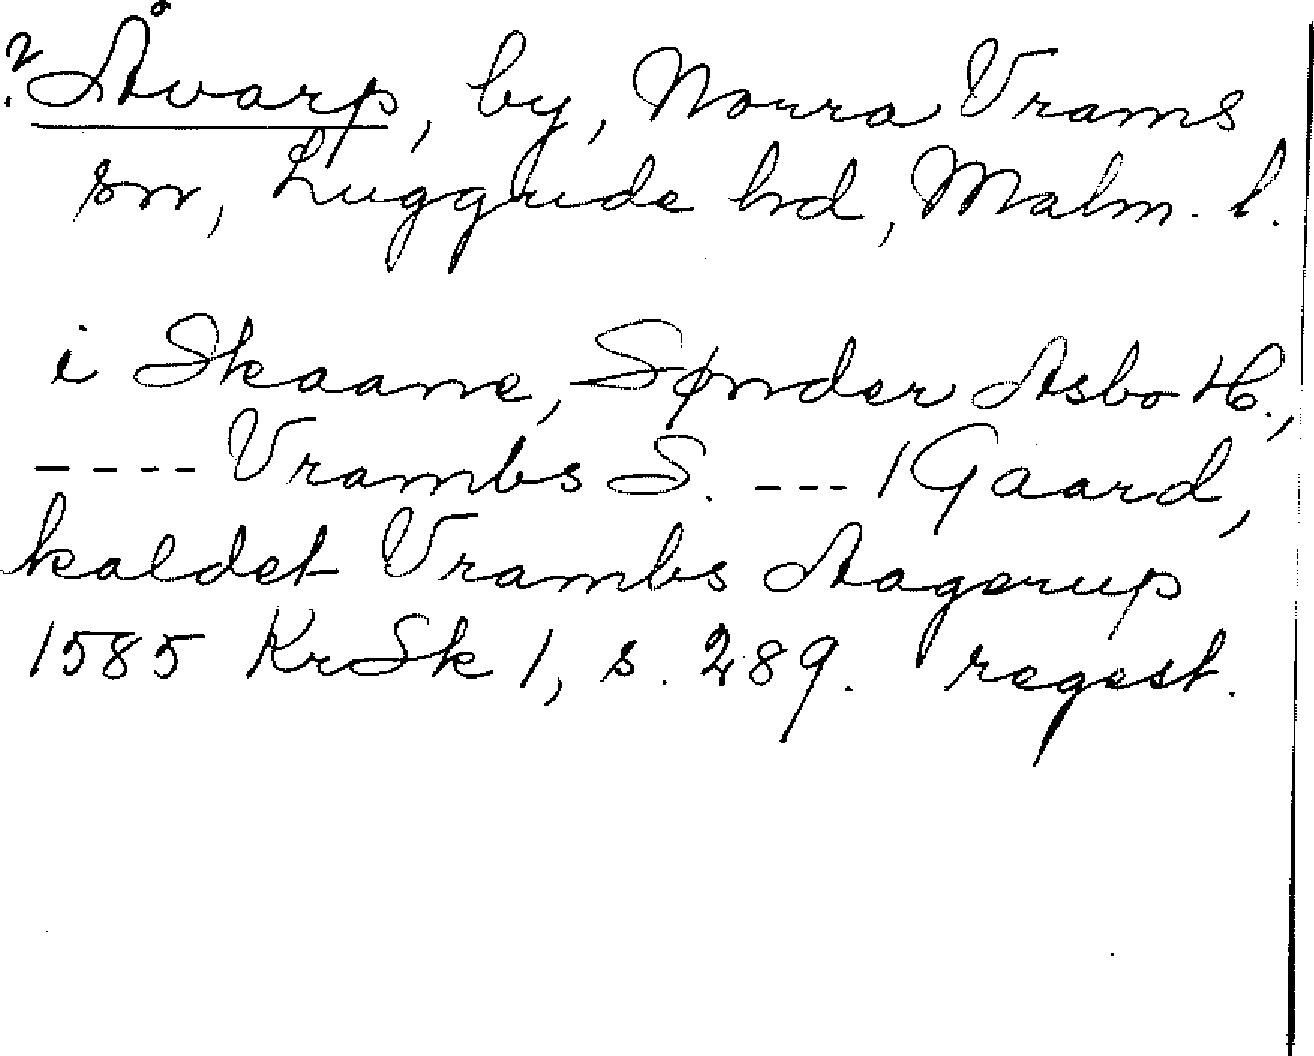 ? Åvarp, by, Norra Vrams
sn, Luggude hd, Malm. l.
i Skaane, Sønder Asbo H.,
---- Vrambs S. --- 1 Gaard,
kaldet Vrambs Aagerup
1585 KrSk 1, s. 289. regest.